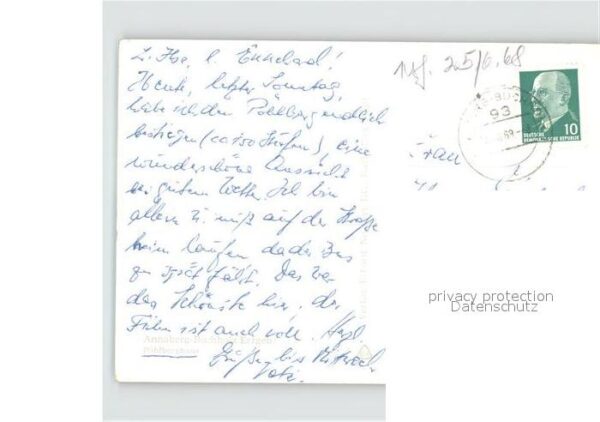 Heute, letzter Sonntag,
habe ich den Pöhlberg endlich
bestiegen (ca 150 Stufen), eine
wunderschöne Aussicht
bei gutem Wetter. Ich bin
allein u. muß auf der Straße
heim laufen da der Bus
zu spät fährt. Das war
das Schönste hier. der
Film ist auch voll. Herzl.
Grüße, bis Mittwoch
Annaberg-Buchholz Erzgeb
Pöhlberghaus
25/6.68
93
10
DEUTSCHE
DEMOKRATISCHE REPUBLIK
Frau
privacy protection
Datenschutz